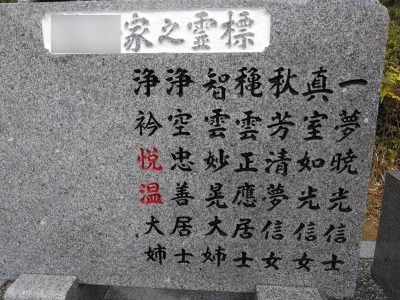 標霊之家
一夢暁光信士
真室如光信女
秋芳清夢信女
穐雲正應居士
智雲妙晃大姉
浄空忠善居士
浄衿悦温大姉